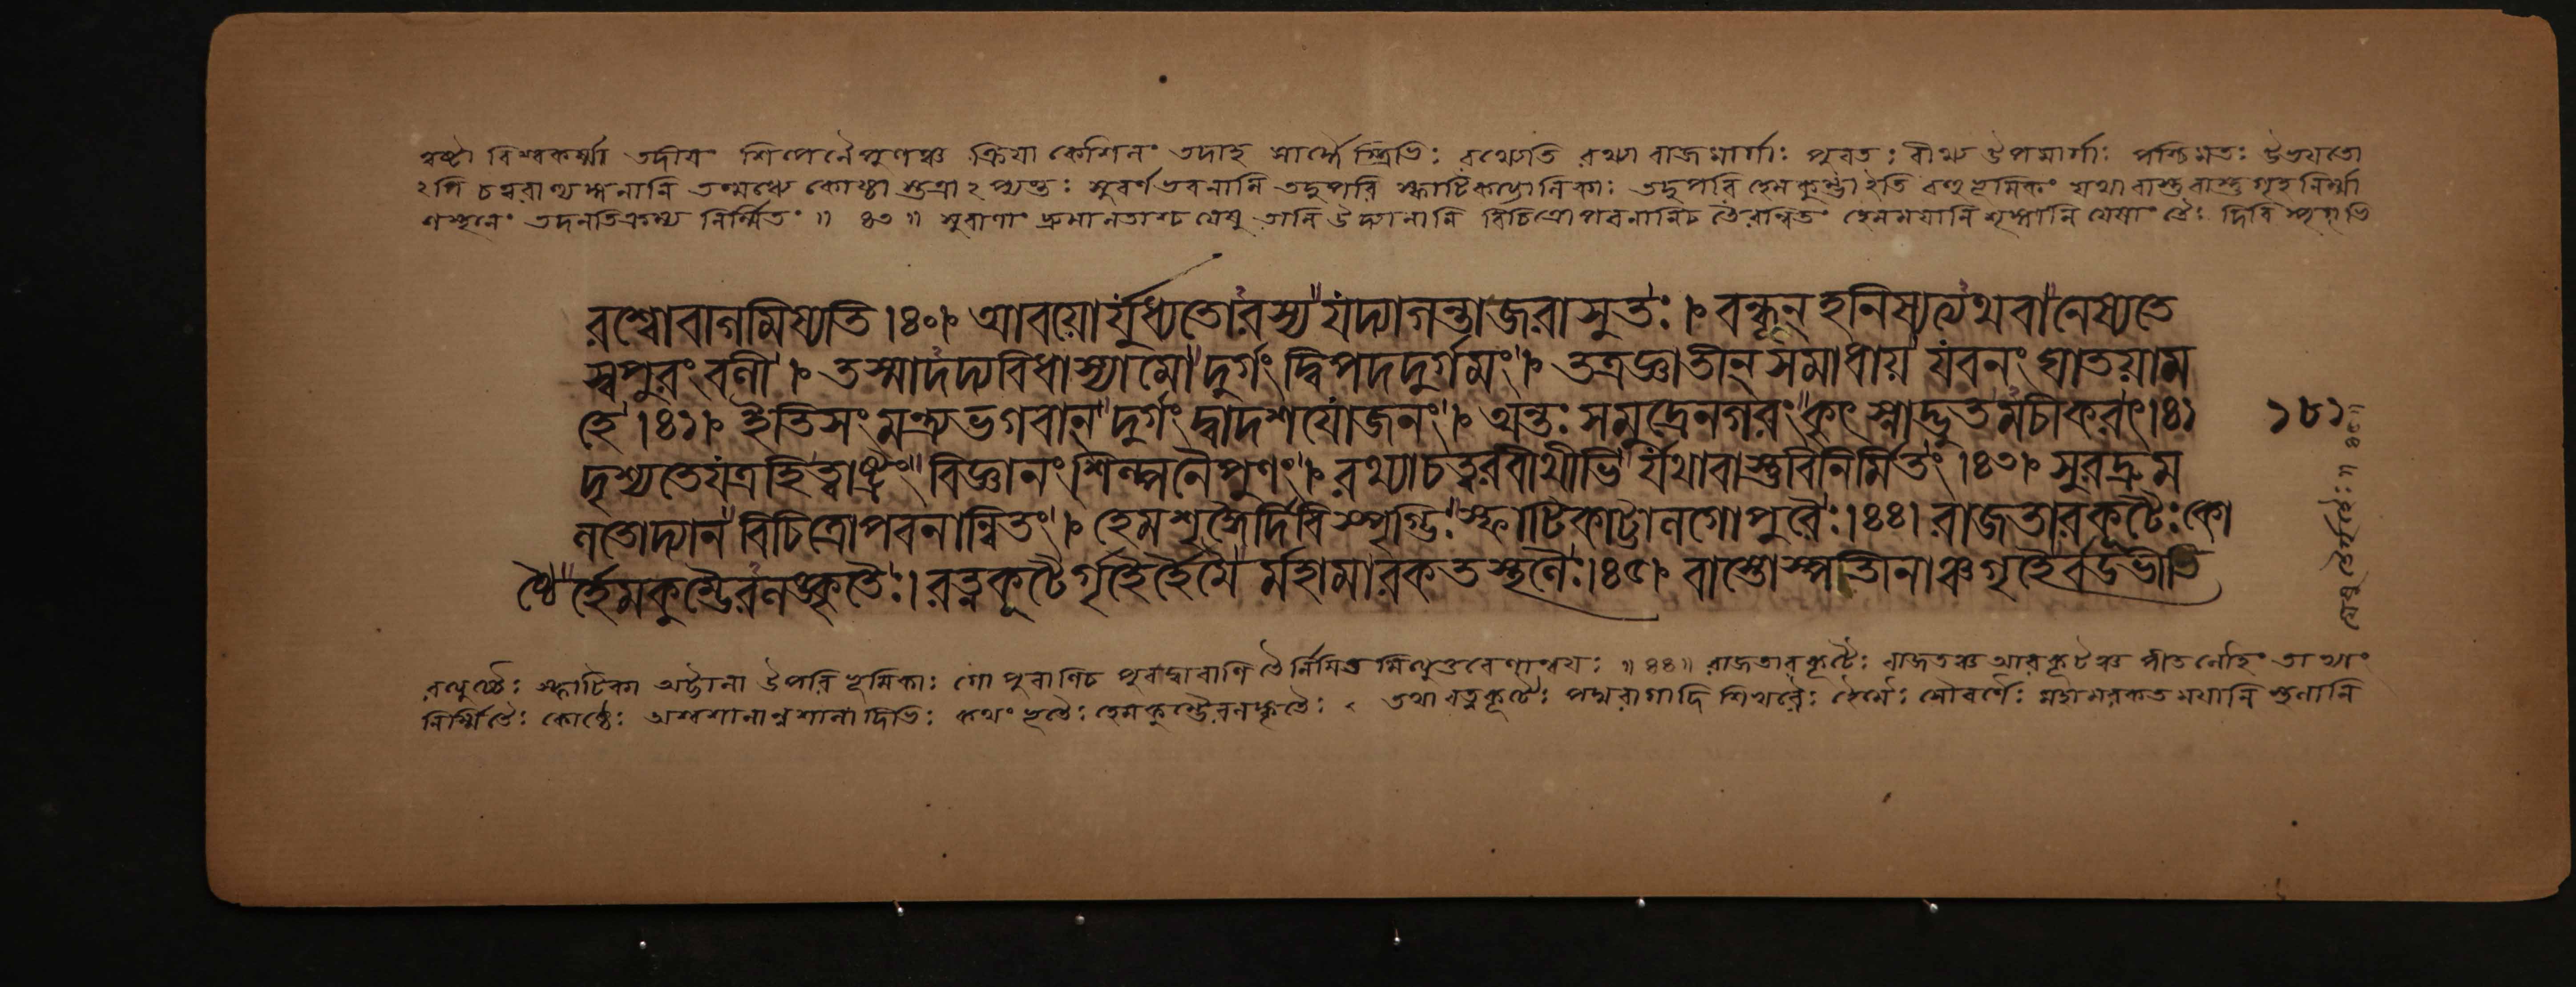 ত্বষ্টা বিশ্বকর্ম্মা তদীয়ং শিল্পনৈপুণঞ্চ ক্রিয়া কৌশলং তদাহ সার্দ্ধৈ স্ত্রিভিঃ রথ্যেতি রথ্যা রাজমার্গাঃ পুরতঃ বীথ্য উপমার্গাঃ পশ্চিমতঃ উভয়তো
ঽপি চত্বরাণ্যঙ্গনানি তন্মধ্যে কোষ্ঠা স্তত্রাঽপ্যন্তঃ সুবর্ণভবনানি তদুপরি স্ফাটিকাট্টালিকাঃ তদুপরি হেমকুম্ভা ইতি বহুভূমিকং যথাবাস্তু বাস্তু গৃহ নির্ম্মা
ণস্থলং তদনতিক্রম্য নির্ম্মিতং ॥ ৪৩ ॥ সুরাণাং দ্রুমা লতাশ্চ যেষু তানি উদ্যানানি বিচিত্রোপবনানিচ তৈরন্বিতং হেমময়ানি শৃঙ্গানি যেষাং তৈঃ দিবি স্পৃশদ্ভি
রশ্বোবাগমিষ্যতি ।৪০। আবয়োর্যুধ্যতোরস্য যদ্যাগন্তাজরাসুতঃ । বন্ধূন্ হনিষ্যত্যথবা নেষ্যতে
স্বপুরং বলী । তস্মাদদ্যবিধাস্যামো দুর্গং দ্বিপদদুর্গমং । তত্রজ্ঞাতীন্ সমাধায় যবনং ঘাতয়াম
হে ।৪১। ইতিসংমন্ত্র্যভগবান্ দুর্গং দ্বাদশযোজনং । অন্তঃসমুদ্রেনগরং কৃৎস্নাদ্ভুতমচীকরৎ ।৪২
১৮১
দৃশ্যতেযত্রহিত্বাষ্ট্রং বিজ্ঞানং শিল্পনৈপুণং । রথ্যাচত্বরবীথীভি র্যথাবাস্তুবিনির্মিতং ।৪৩। সুরদ্রুম
লতোদ্যান বিচিত্রোপবনান্বিতং । হেমশৃঙ্গৈর্দিবিস্পৃগ্ভিঃ স্ফাটিকাট্টালগোপুরৈঃ ।৪৪। রাজতারকূটৈঃকো
ষ্ঠৈ র্হেমকুম্ভৈরলঙ্কৃতৈঃ । রত্নকূটৈর্গৃহৈর্হৈমৈ র্মহামারকতস্থলৈঃ ।৪৫। বাস্তোষ্পতীনাঞ্চগৃহৈর্বডভীভি
রত্যুচ্চৈঃ স্ফাটিকা অট্টালা উপরি ভূমিকাঃ গোপুরাণিচ পুরদ্বারাণি তৈর্নির্মিতমিত্যুত্তরেণান্বয়ঃ ॥ ৪৪ ॥ রাজতারকূটৈঃ রাজতঞ্চ আরকূটঞ্চ পীতলোহং তাভ্যাং
নির্ম্মিতৈঃ কোষ্ঠৈঃ অশ্বশালান্নশালাদিভিঃ কথং ভূতৈঃ হেমকুম্ভৈরলঙ্কৃতৈঃ তথা রত্নকূটৈঃ পদ্মরাগাদি শিখরৈঃ হৈমৈঃ সৌবর্ণৈঃ মহামরকতময়ানি স্থলানি
যেষু তৈর্গৃহৈঃ ॥ ৪৫ ॥